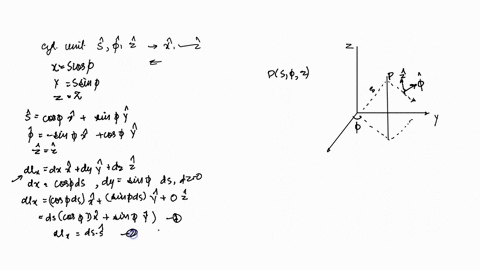 cyl unit ŝ, φ̂, ẑ → x̂, — ẑ
x = s cosφ
Y = s sinφ
z = z
ŝ = cosφ x̂ + sinφ Ŷ
φ̂ = -sinφ x̂ + cosφ Ŷ
ẑ = ẑ
dlx = dx x̂ + dy Ŷ + dz ẑ
→ dx = cosφ ds, dy = sinφ ds, dz=0
dlx = (cosφ ds) x̂ + (sinφ ds) Ŷ + 0 ẑ
= ds (cosφ x̂ + sinφ Ŷ) — ①
dlx = ds · ŝ — ②
P(s, φ, z)
z
P
ẑ
φ̂
s
Y
φ